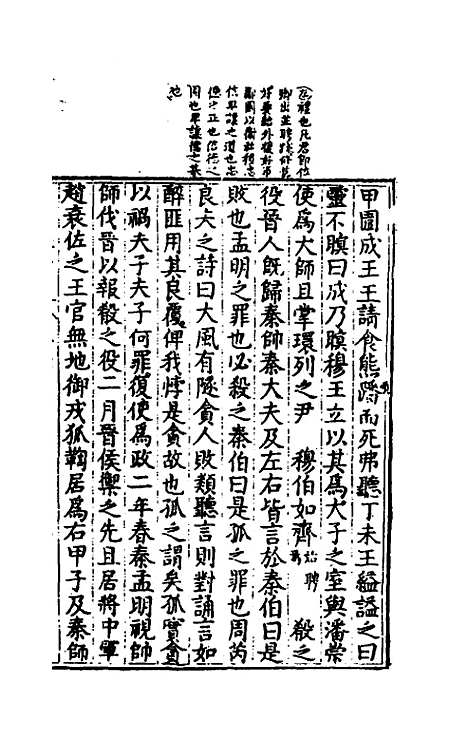 甲圍成王王請食熊蹯而死弗聽丁未王縊謚之曰
靈不瞑曰成乃瞑穆王立以其爲大子之室與潘崇
使爲大師且掌環列之尹 穆伯如齊始聘 殽之
役晉人旣歸秦帥秦大夫及左右皆言於秦伯曰是
敗也孟明之罪也必殺之秦伯曰是孤之罪也周芮
良夫之詩曰大風有隧貪人敗類聽言則對誦言如
醉匪用其良覆俾我悖是貪故也孤之謂矣孤實貪
以禍夫子夫子何罪復使爲政二年春秦孟明視帥
師伐晉以報殽之役二月晉侯禦之先且居將中軍
趙衰佐之王官無地御戎狐鞫居爲右甲子及秦師
禮也凡君卽位
卿出並聘踐修舊
好要結外援好事
鄰國以衛社稷忠
信卑讓之道也忠
德之正也信德之
固也卑讓德之基
也